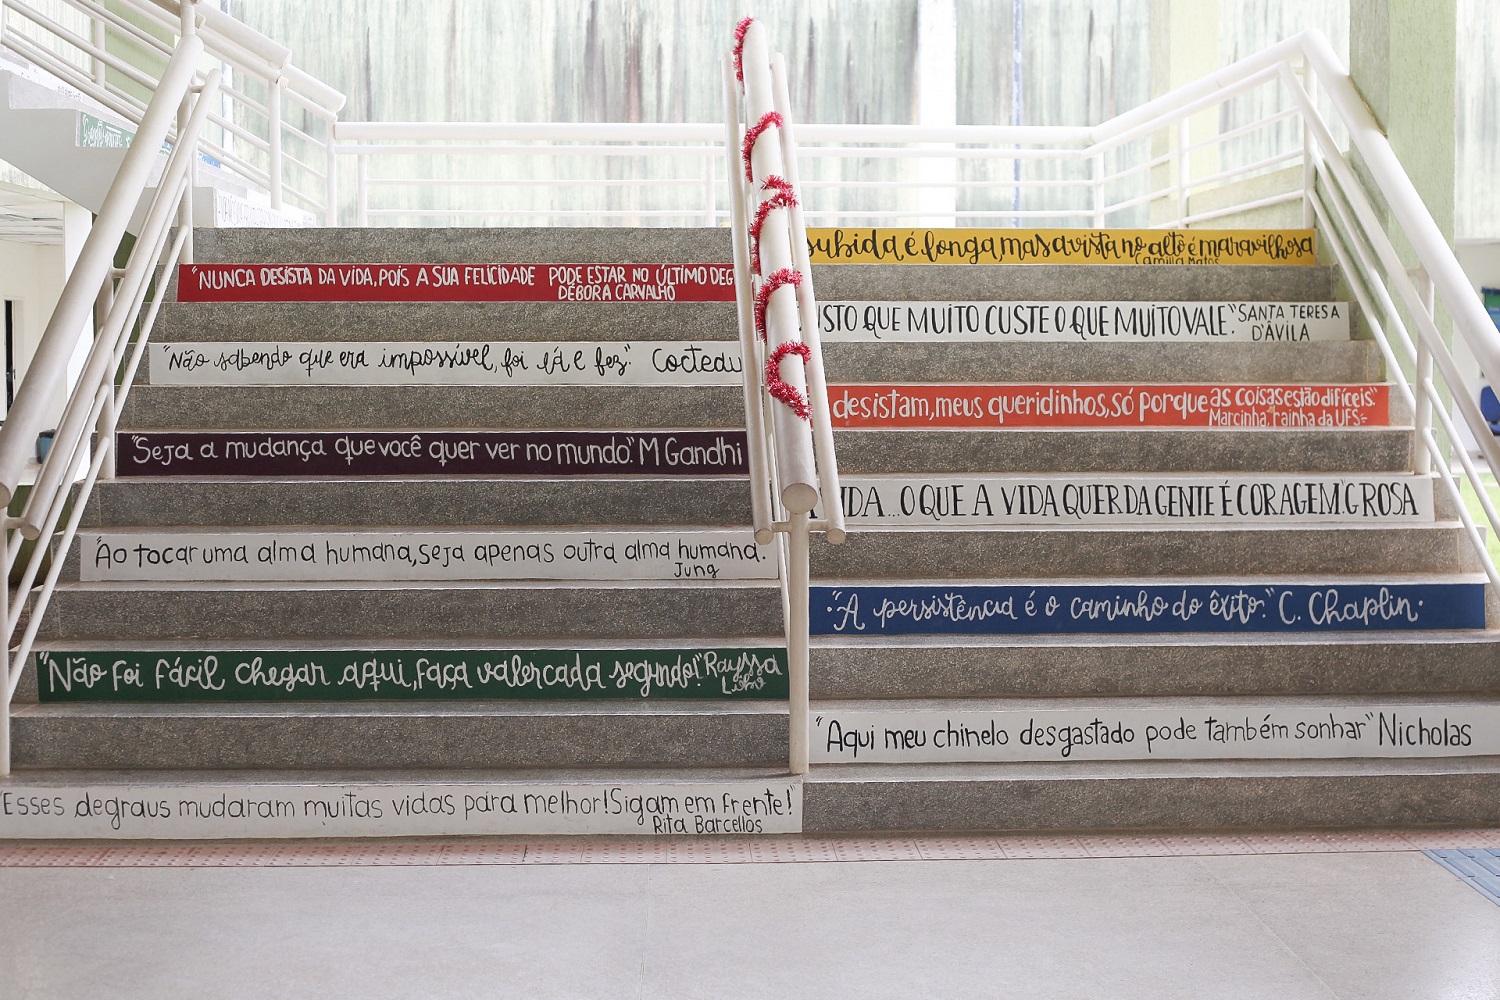 "NUNCA DESISTA DA VIDA, POIS A SUA FELICIDADE PODE ESTAR NO ÚLTIMO
DÉBORA CARVALHO
"Não sabendo que era impossível, foi lá e fez." Cocteau
"Seja a mudança que você quer ver no mundo." M Gandhi
"Ao tocar uma alma humana, seja apenas outra alma humana.
Jung
"Não foi fácil chegar aqui, faça valer cada segundo!" Rayssa
"Esses degraus mudaram muitas vidas para melhor! Sigam em frente!"
Rita Barcellos
subida é longa, mas a vista no alto é maravilhosa
Camilla Matos
ISTO QUE MUITO CUSTE O QUE MUITO VALE." SANTA TERESA
D'ÁVILA
desistam, meus queridinhos, só porque as coisas estão difíceis"
Marcinha, rainha da UFS
VIDA... O QUE A VIDA QUER DA GENTE É CORAGEM." G ROSA
"A persistência é o caminho do êxito." C. Chaplin
"Aqui meu chinelo desgastado pode também sonhar" Nicholas